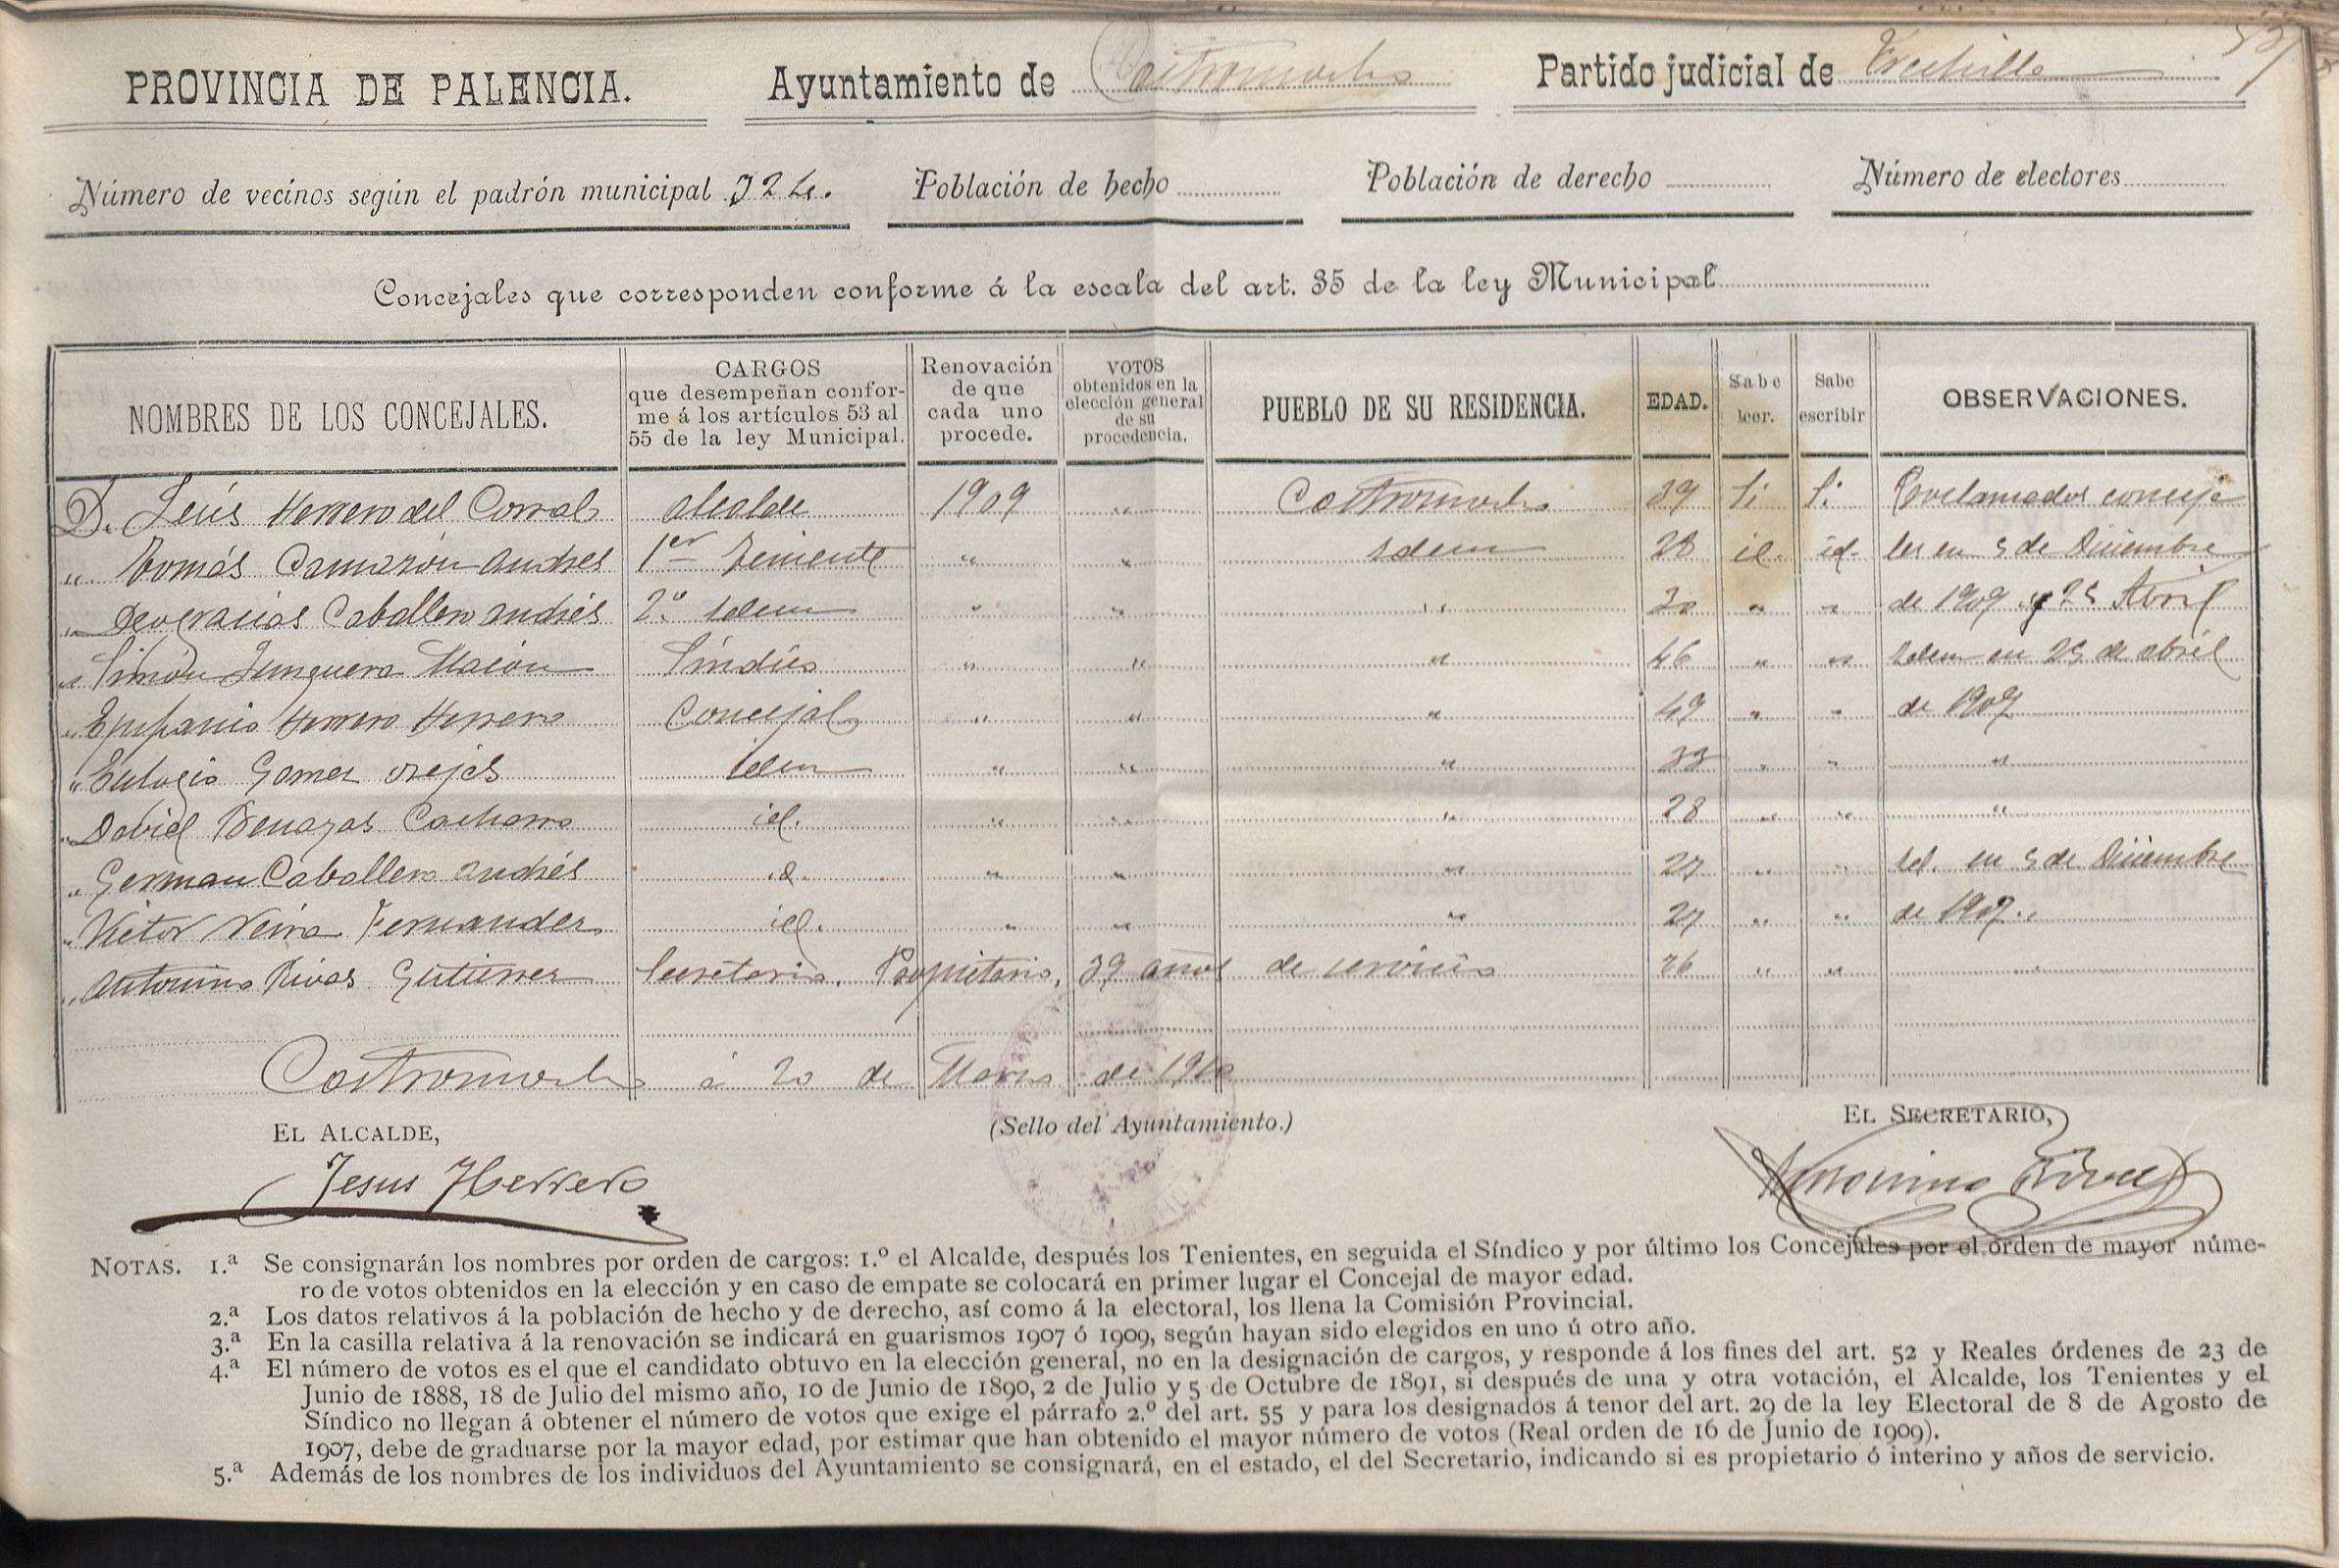 PROVINCIA DE PALENCIA. Ayuntamiento de Castromocho Partido judicial de Frechilla
Número de vecinos según el padrón municipal 324. Población de hecho Población de derecho Número de electores
Concejales que corresponden conforme á la escala del art. 35 de la ley Municipal
NOMBRES DE LOS CONCEJALES. CARGOS que desempeñan confor-me á los artículos 53 al 55 de la ley Municipal. Renovación de que cada uno procede. VOTOS obtenidos en la elección general de su procedencia. PUEBLO DE SU RESIDENCIA. EDAD. Sabe leer. Sabe escribir OBSERVACIONES.
D. Jesús Herrero del Corral Alcalde 1909 " Castromocho 39 Si Si Proclamados conceja
" Tomás Camazón Andrés 1er Teniente " " Idem 28 id. id. les en 5 de Diciembre
" Deogracias Caballero Andrés 2.º Idem " " " 30 " " de 1909 y 25 Abril
" Simón Junquera Síndico " " " 46 " " Idem en 25 de abril
" Epifanio Herrero Herrero Concejal " " " 49 " " de 1909
" Eulogio Gomez Orejas idem " " " 33 " " "
" David Benazas Cacharro id. " " " 28 " " "
" German Caballero Andrés id. " " " 27 " " Id. en 5 de Diciembre
" Victor Neira Fernandez id. " " " 27 " " de 1909.
" Antonino Rivas Gutierrez Secretario. Propietario, 39 años de servicio " "
Castromocho á 20 de Marzo de 1910
EL ALCALDE, (Sello del Ayuntamiento.) EL SECRETARIO,
Jesus Herrero Antonino Rivas
NOTAS. 1.ª Se consignarán los nombres por orden de cargos: 1.º el Alcalde, después los Tenientes, en seguida el Síndico y por último los Concejales por el orden de mayor núme-
ro de votos obtenidos en la elección y en caso de empate se colocará en primer lugar el Concejal de mayor edad.
2.ª Los datos relativos á la población de hecho y de derecho, así como á la electoral, los llena la Comisión Provincial.
3.ª En la casilla relativa á la renovación se indicará en guarismos 1907 ó 1909, según hayan sido elegidos en uno ú otro año.
4.ª El número de votos es el que el candidato obtuvo en la elección general, no en la designación de cargos, y responde á los fines del art. 52 y Reales órdenes de 23 de
Junio de 1888, 18 de Julio del mismo año, 10 de Junio de 1890, 2 de Julio y 5 de Octubre de 1891, si después de una y otra votación, el Alcalde, los Tenientes y el
Síndico no llegan á obtener el número de votos que exige el párrafo 2.º del art. 55 y para los designados á tenor del art. 29 de la ley Electoral de 8 de Agosto de
1907, debe de graduarse por la mayor edad, por estimar que han obtenido el mayor número de votos (Real orden de 16 de Junio de 1909).
5.ª Además de los nombres de los individuos del Ayuntamiento se consignará, en el estado, el del Secretario, indicando si es propietario ó interino y años de servicio.